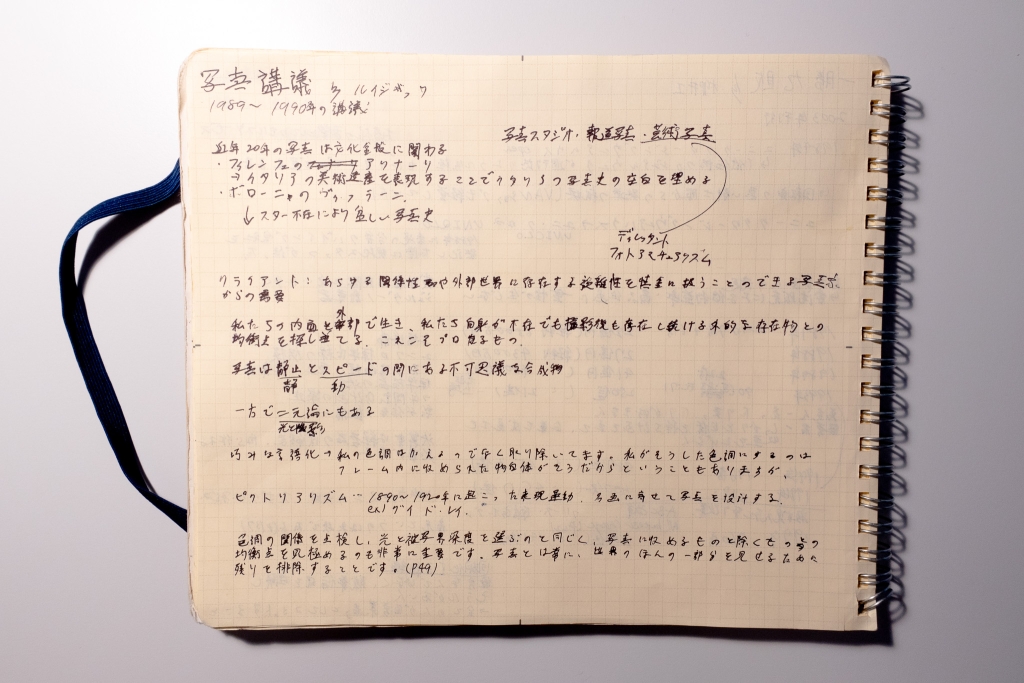 写真講議 by ルイジギッリ
1989〜1990年の講議
写真スタジオ・報道写真・芸術写真
近年20年の写真は文化全般に関わる
・フィレンツェの アリナーリ
→イタリアの美術遺産を表現することでイタリアの写真史の空白を埋める
・ボローニャの
↓スター不在により貧しい写真史
ディレッタント
フォトアマチュアリズム
クライアント：あらゆる関係性や外部世界に存在する複雑性を慎重に扱うことのできる写真家
からの需要
私たちの内面と外部で生き、私たち自身が不在でも撮影後も存在し続ける外的な存在物との
均衡点を探し当てる。これこそプロたるもの。
写真は静止とスピードの間にある不可思議な合成物
静 動
一方で二元論にもある
光と陰影
巧みな言語化→私の色調はかえるので なく取り除いてます。私がそうした色調にするのは
フレーム内に収められた物自体がそうだからということもありますが、
ピクトリアリズム… 1890〜1920年に起こった表現運動、絵画に寄せて写真を設計する。
ex) グイド・レイ.
色調の関係を点検し、光と被写界深度を選ぶのと同じく、写真に収めるものと除くものの
均衡点を見極めるのも非常に重要です。写真とは常に、世界のほんの一部分を見せるために
残りを排除することです。(P44)